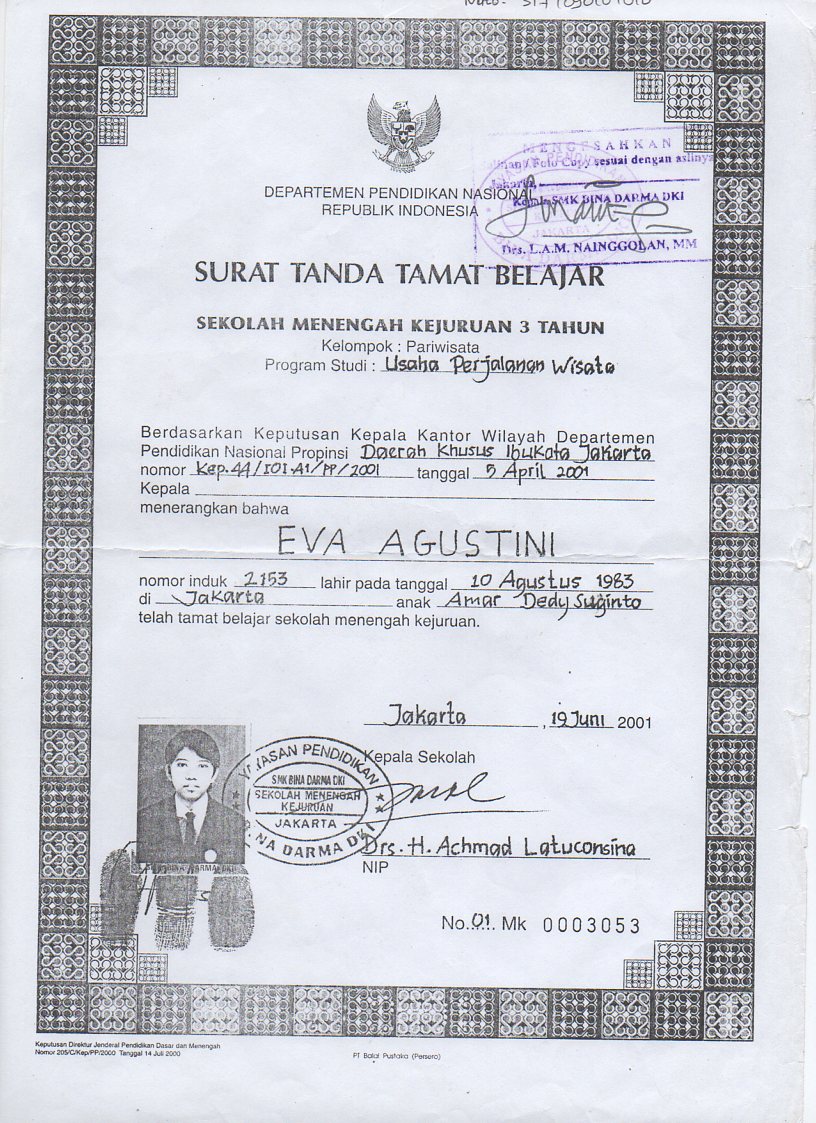 DEPARTEMEN PENDIDIKAN NASIONAL
REPUBLIK INDONESIA
MENGESAHKAN
Foto Copy sesuai dengan aslinya
Jakarta,
SMK BINA DARMA DKI
JAKARTA
Drs. L.A.M. NAINGGOLAN, MM
SURAT TANDA TAMAT BELAJAR
SEKOLAH MENENGAH KEJURUAN 3 TAHUN
Kelompok : Pariwisata
Program Studi : Usaha Perjalanan Wisata
Berdasarkan Keputusan Kepala Kantor Wilayah Departemen
Pendidikan Nasional Propinsi Daerah Khusus Ibukota Jakarta
nomor Kep.44/I01.A1/PP/2001 tanggal 5 April 2001
Kepala
menerangkan bahwa
EVA AGUSTINI
nomor induk 2153 lahir pada tanggal 10 Agustus 1983
di Jakarta anak Amar Dedy Suginto
telah tamat belajar sekolah menengah kejuruan.
Jakarta, 19 Juni 2001
Kepala Sekolah
YAYASAN PENDIDIKAN
SMK BINA DARMA DKI
SEKOLAH MENENGAH
KEJURUAN
JAKARTA
BINA DARMA DKI
Drs. H. Achmad Latuconsina
NIP
No. 01. Mk 0003053
Keputusan Direktur Jenderal Pendidikan Dasar dan Menengah
Nomor 205/C/Kep/PP/2000 Tanggal 14 Juli 2000
PT Balai Pustaka (Persero)